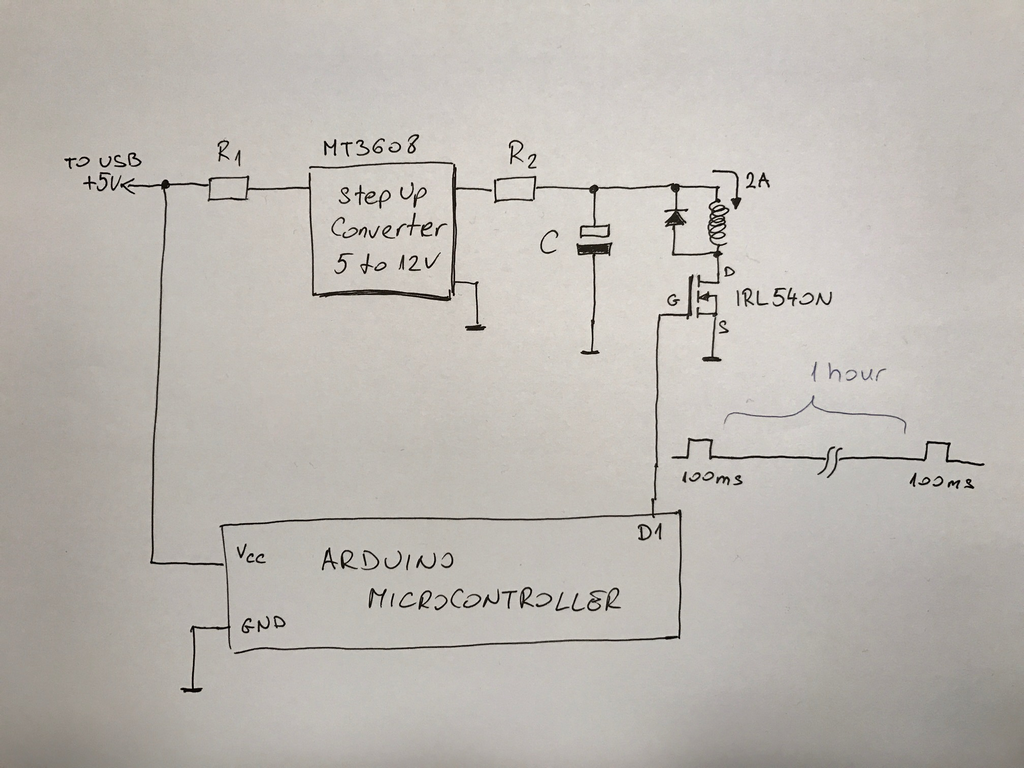 TO USB
+5V
R1
MT3608
Step Up
Converter
5 to 12V
R2
C
2A
D
G
S
IRL540N
1 hour
100ms
100ms
D1
Vcc
ARDUINO
MICROCONTROLLER
GND